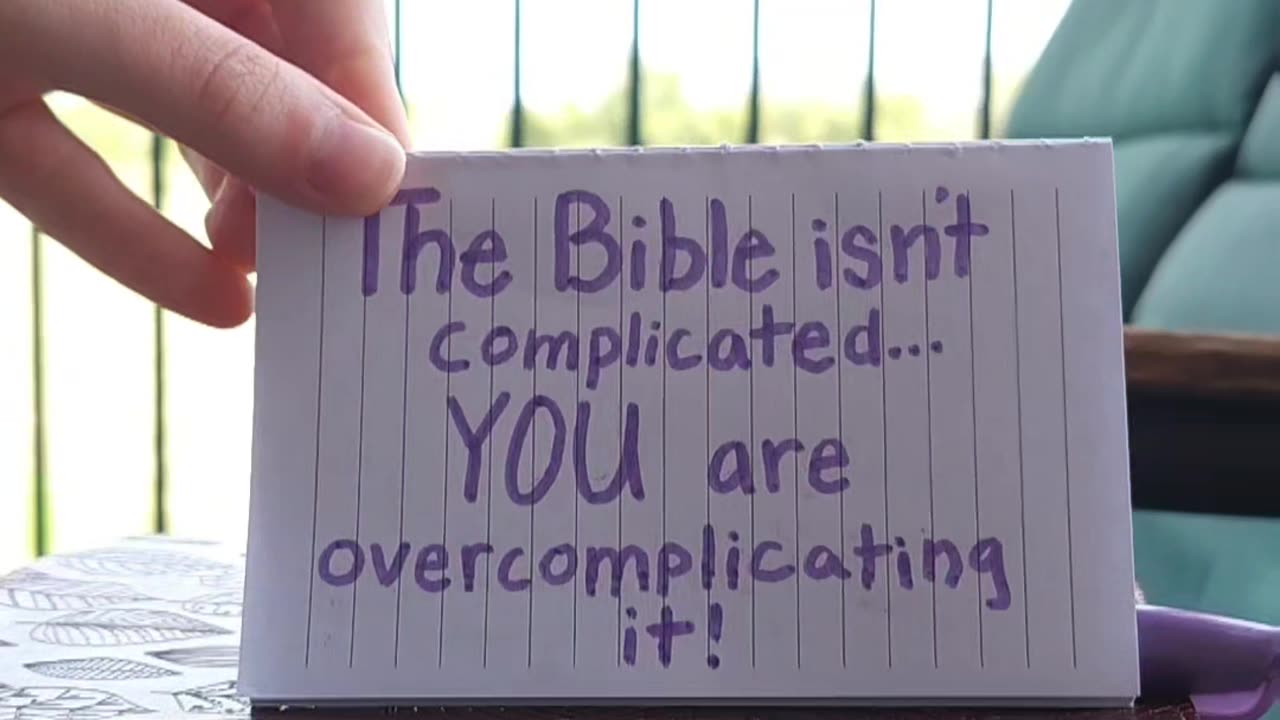 The Bible isn't
complicated...
YOU are
overcomplicating
it!